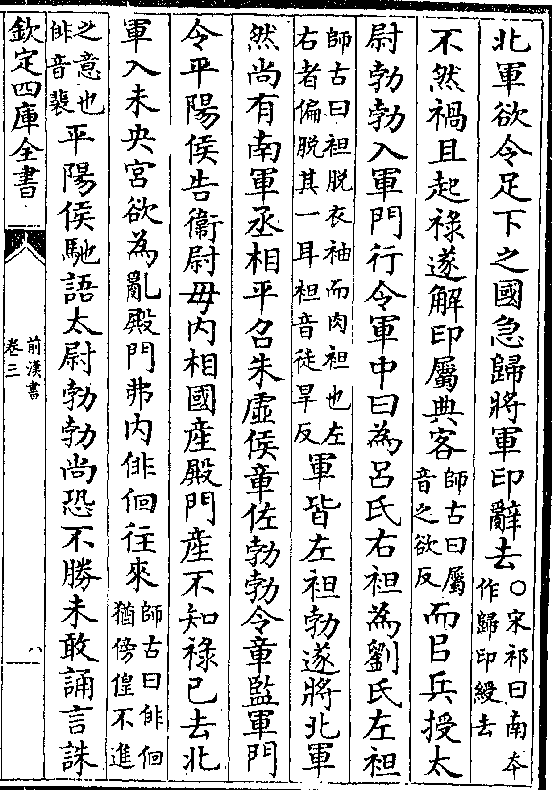 北軍欲令足下之國急歸將軍印辭去○宋祁曰南本
作歸印綬去
不然禍且起祿遂解印屬典客師古曰屬
音之欲反而㠯兵授太
尉勃勃入軍門行令軍中曰為呂氏右袒為劉氏左袒
師古曰袒脱衣袖而肉袒也左
右者偏脱其一耳袒音徒旱反軍皆左袒勃遂將北軍
然尚有南軍丞相平召朱虛侯章佐勃勃令章監軍門
令平陽侯告衞尉毋内相國產殿門產不知祿已去北
軍入未央宫欲為亂殿門弗内俳佪往來師古曰俳佪
猶傍偟不進
之意也
俳音裴平陽侯馳語太尉勃勃尚恐不勝未敢誦言誅
欽定四庫全書
前漢書
卷三
八